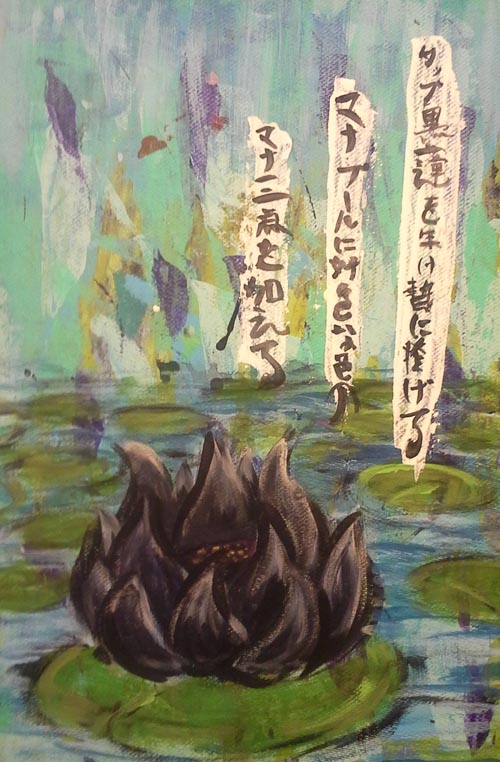 タップ黒蓮を生け贄に捧げる
マナプールに好きの色の
マナ三点を加える